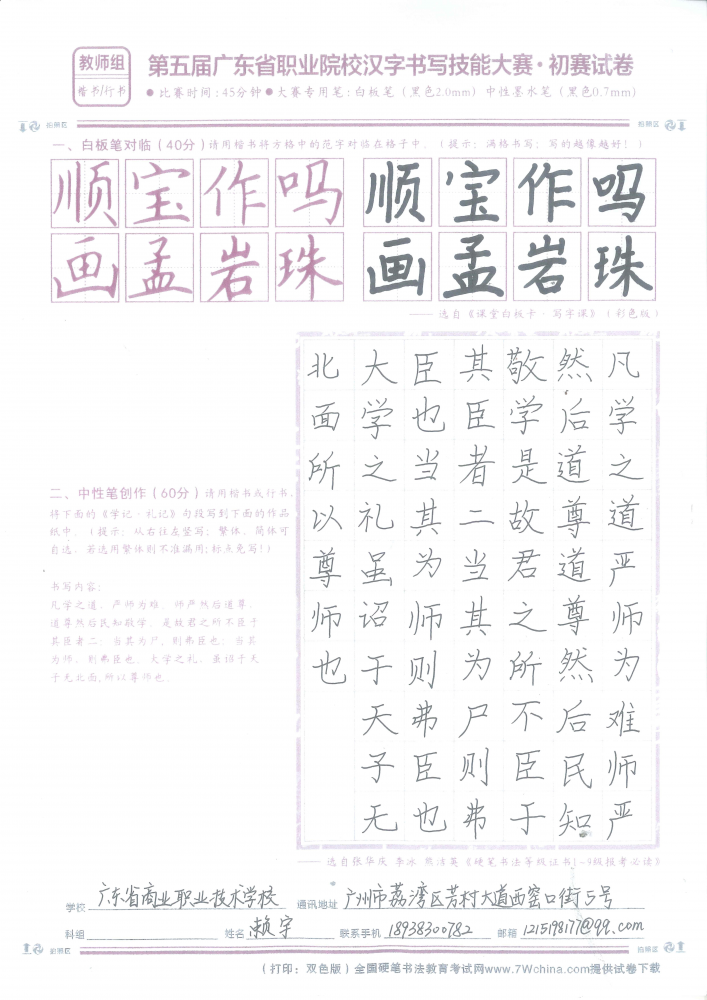 教师组
楷书/行书
第五届广东省职业院校汉字书写技能大赛·初赛试卷
●比赛时间:45分钟●大赛专用笔:白板笔(黑色2.0mm)中性墨水笔(黑色0.7mm)
拍照区
拍照区
一、白板笔对临(40分)请用楷书将方格中的范字对临在格子中。(提示:满格书写;写的越像越好!)
顺宝作吗
画孟岩珠
顺宝作吗
画孟岩珠
——选自《课堂白板卡·写字课》(彩色版)
二、中性笔创作(60分)请用楷书或行书,
将下面的《学记·礼记》句段写到下面的作品
纸中。(提示:从右往左竖写;繁体、简体可
自选,若选用繁体则不准漏用;标点免写!)
书写内容:
凡学之道,严师为难。师严然后道尊,
道尊然后民知敬学。是故君之所不臣于
其臣者二:当其为尸,则弗臣也;当其
为师,则弗臣也。大学之礼,虽诏于天
子无北面,所以尊师也。
凡学之道严师为难师严
然后道尊道尊然后民知
敬学是故君之所不臣于
其臣者二当其为尸则弗
臣也当其为师则弗臣也
大学之礼虽诏于天子无
北面所以尊师也
——选自张华庆 李冰 熊洁英《硬笔书法等级证书1-9级报考必读》
学校 广东省商业职业技术学校 通讯地址 广州市荔湾区芳村大道西窑口街5号
科组 姓名 赖宇 联系手机 18938300782 邮箱 1215198177@qq.com
拍照区
拍照区
(打印:双色版)全国硬笔书法教育考试网www.7Wchina.com提供试卷下载